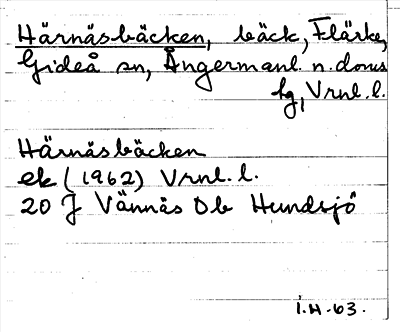 Härnäsbäcken, bäck, Flärke,
Gideå sn, Ångermanl. n. doms
fg, Vrnl. l.
Härnäsbäcken
ek (1962) Vrnl. l.
20 J Vännäs Ob Hundsjö
I.H.63.